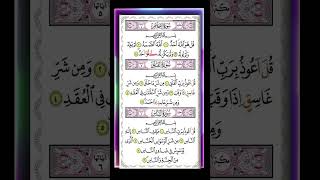 سُورَةُ الْإِخْلَاصِ
بِسْمِ اللَّهِ الرَّحْمَٰنِ الرَّحِيمِ
قُلْ هُوَ اللَّهُ أَحَدٌ ١ اللَّهُ الصَّمَدُ ٢ لَمْ يَلِدْ
وَلَمْ يُولَدْ ٣ وَلَمْ يَكُن لَّهُ كُفُوًا أَحَدٌ ٤
سُورَةُ الْفَلَقِ
بِسْمِ اللَّهِ الرَّحْمَٰنِ الرَّحِيمِ
قُلْ أَعُوذُ بِرَبِّ الْفَلَقِ ١ مِن شَرِّ مَا خَلَقَ ٢ وَمِن شَرِّ
غَاسِقٍ إِذَا وَقَبَ ٣ وَمِن شَرِّ النَّفَّاثَاتِ فِي الْعُقَدِ ٤
وَمِن شَرِّ حَاسِدٍ إِذَا حَسَدَ ٥
سُورَةُ النَّاسِ
بِسْمِ اللَّهِ الرَّحْمَٰنِ الرَّحِيمِ
قُلْ أَعُوذُ بِرَبِّ النَّاسِ ١ مَلِكِ النَّاسِ ٢ إِلَٰهِ
النَّاسِ ٣ مِن شَرِّ الْوَسْوَاسِ الْخَنَّاسِ ٤ الَّذِي
يُوَسْوِسُ فِي صُدُورِ النَّاسِ ٥
مِنَ الْجِنَّةِ وَالنَّاسِ ٦
قُلْ أَعُوذُ بِرَبِّ
وَمِن شَرِّ
غَاسِقٍ إِذَا وَقَ
فِي الْعُقَدِ ٤